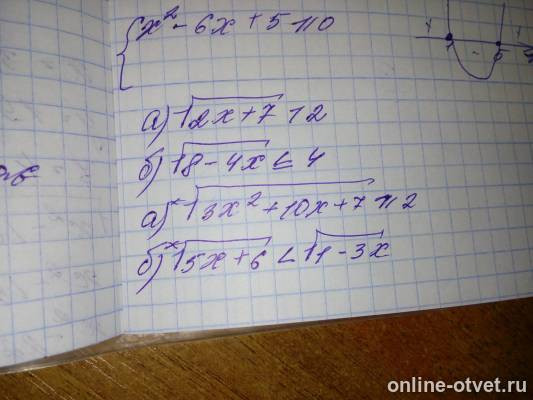 x² - 6x + 5 ≥ 0
+ - +
а) √2x+7 > 2
б) √8-4x ≤ 4
а)* √3x²+10x+7 ≥ 2
б)* √5x+6 < √1-3x
online-otvet.ru